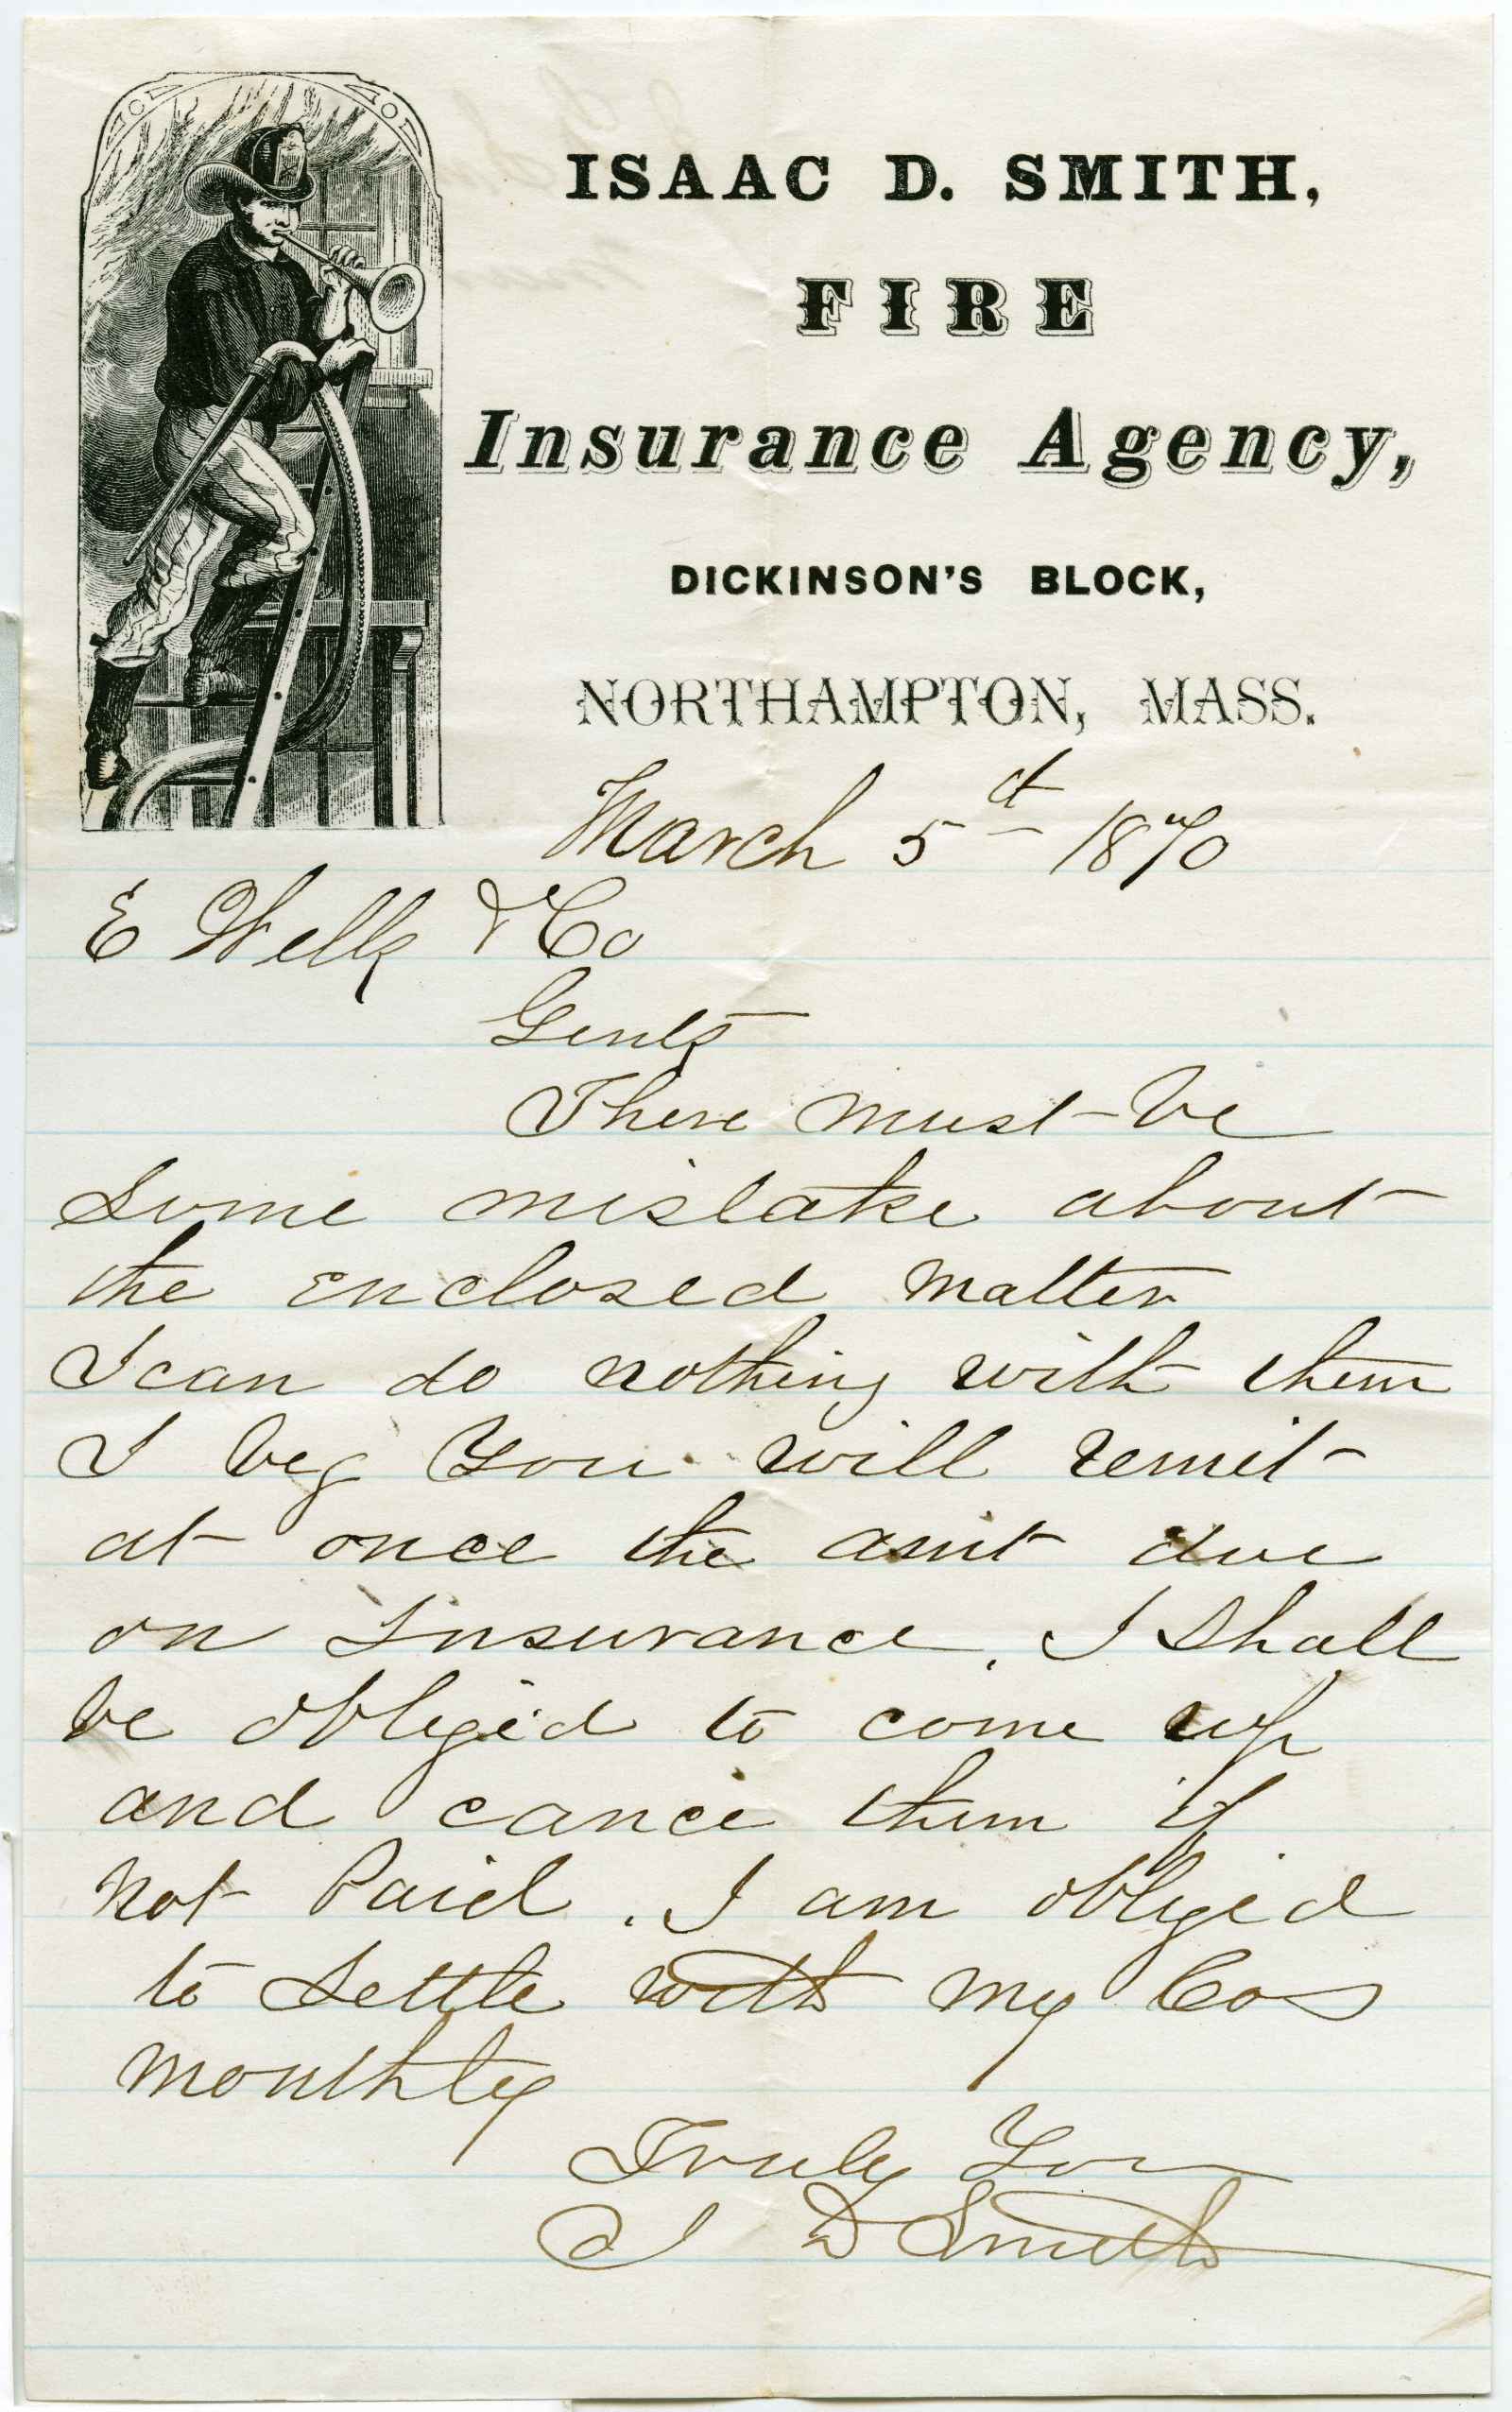 ISAAC D. SMITH,
FIRE
Insurance Agency,
DICKINSON'S BLOCK,
NORTHAMPTON, MASS.
March 5th 1870
E Wells & Co
Gents
There must be
some mistake about
the enclosed matter
I can do nothing with them
I beg you will remit
at once the amt due
on Insurance. I shall
be obliged to come up
and cance them if
not Paid. I am obliged
to settle with my Cos
monthly
Truly Your
I D Smith